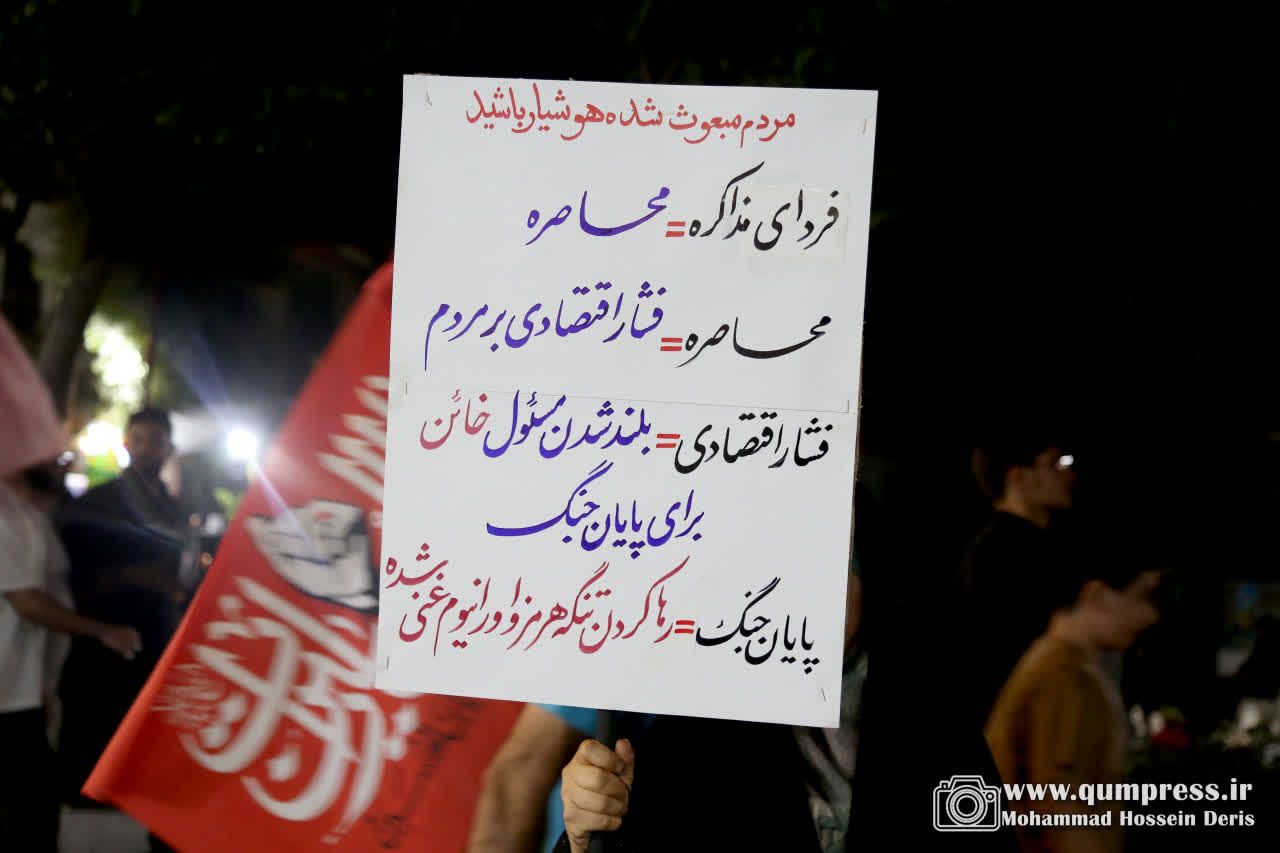 مردم مبعوث شده هوشیار باشید
فردای مذاکره = محاصره
محاصره = فشار اقتصادی بر مردم
فشار اقتصادی = بلند شدن مسئول خائن
برای پایان جنگ
پایان جنگ = رها کردن تنگه هرمز و اورانیوم غنی شده
www.qumpress.ir
Mohammad Hossein Deris